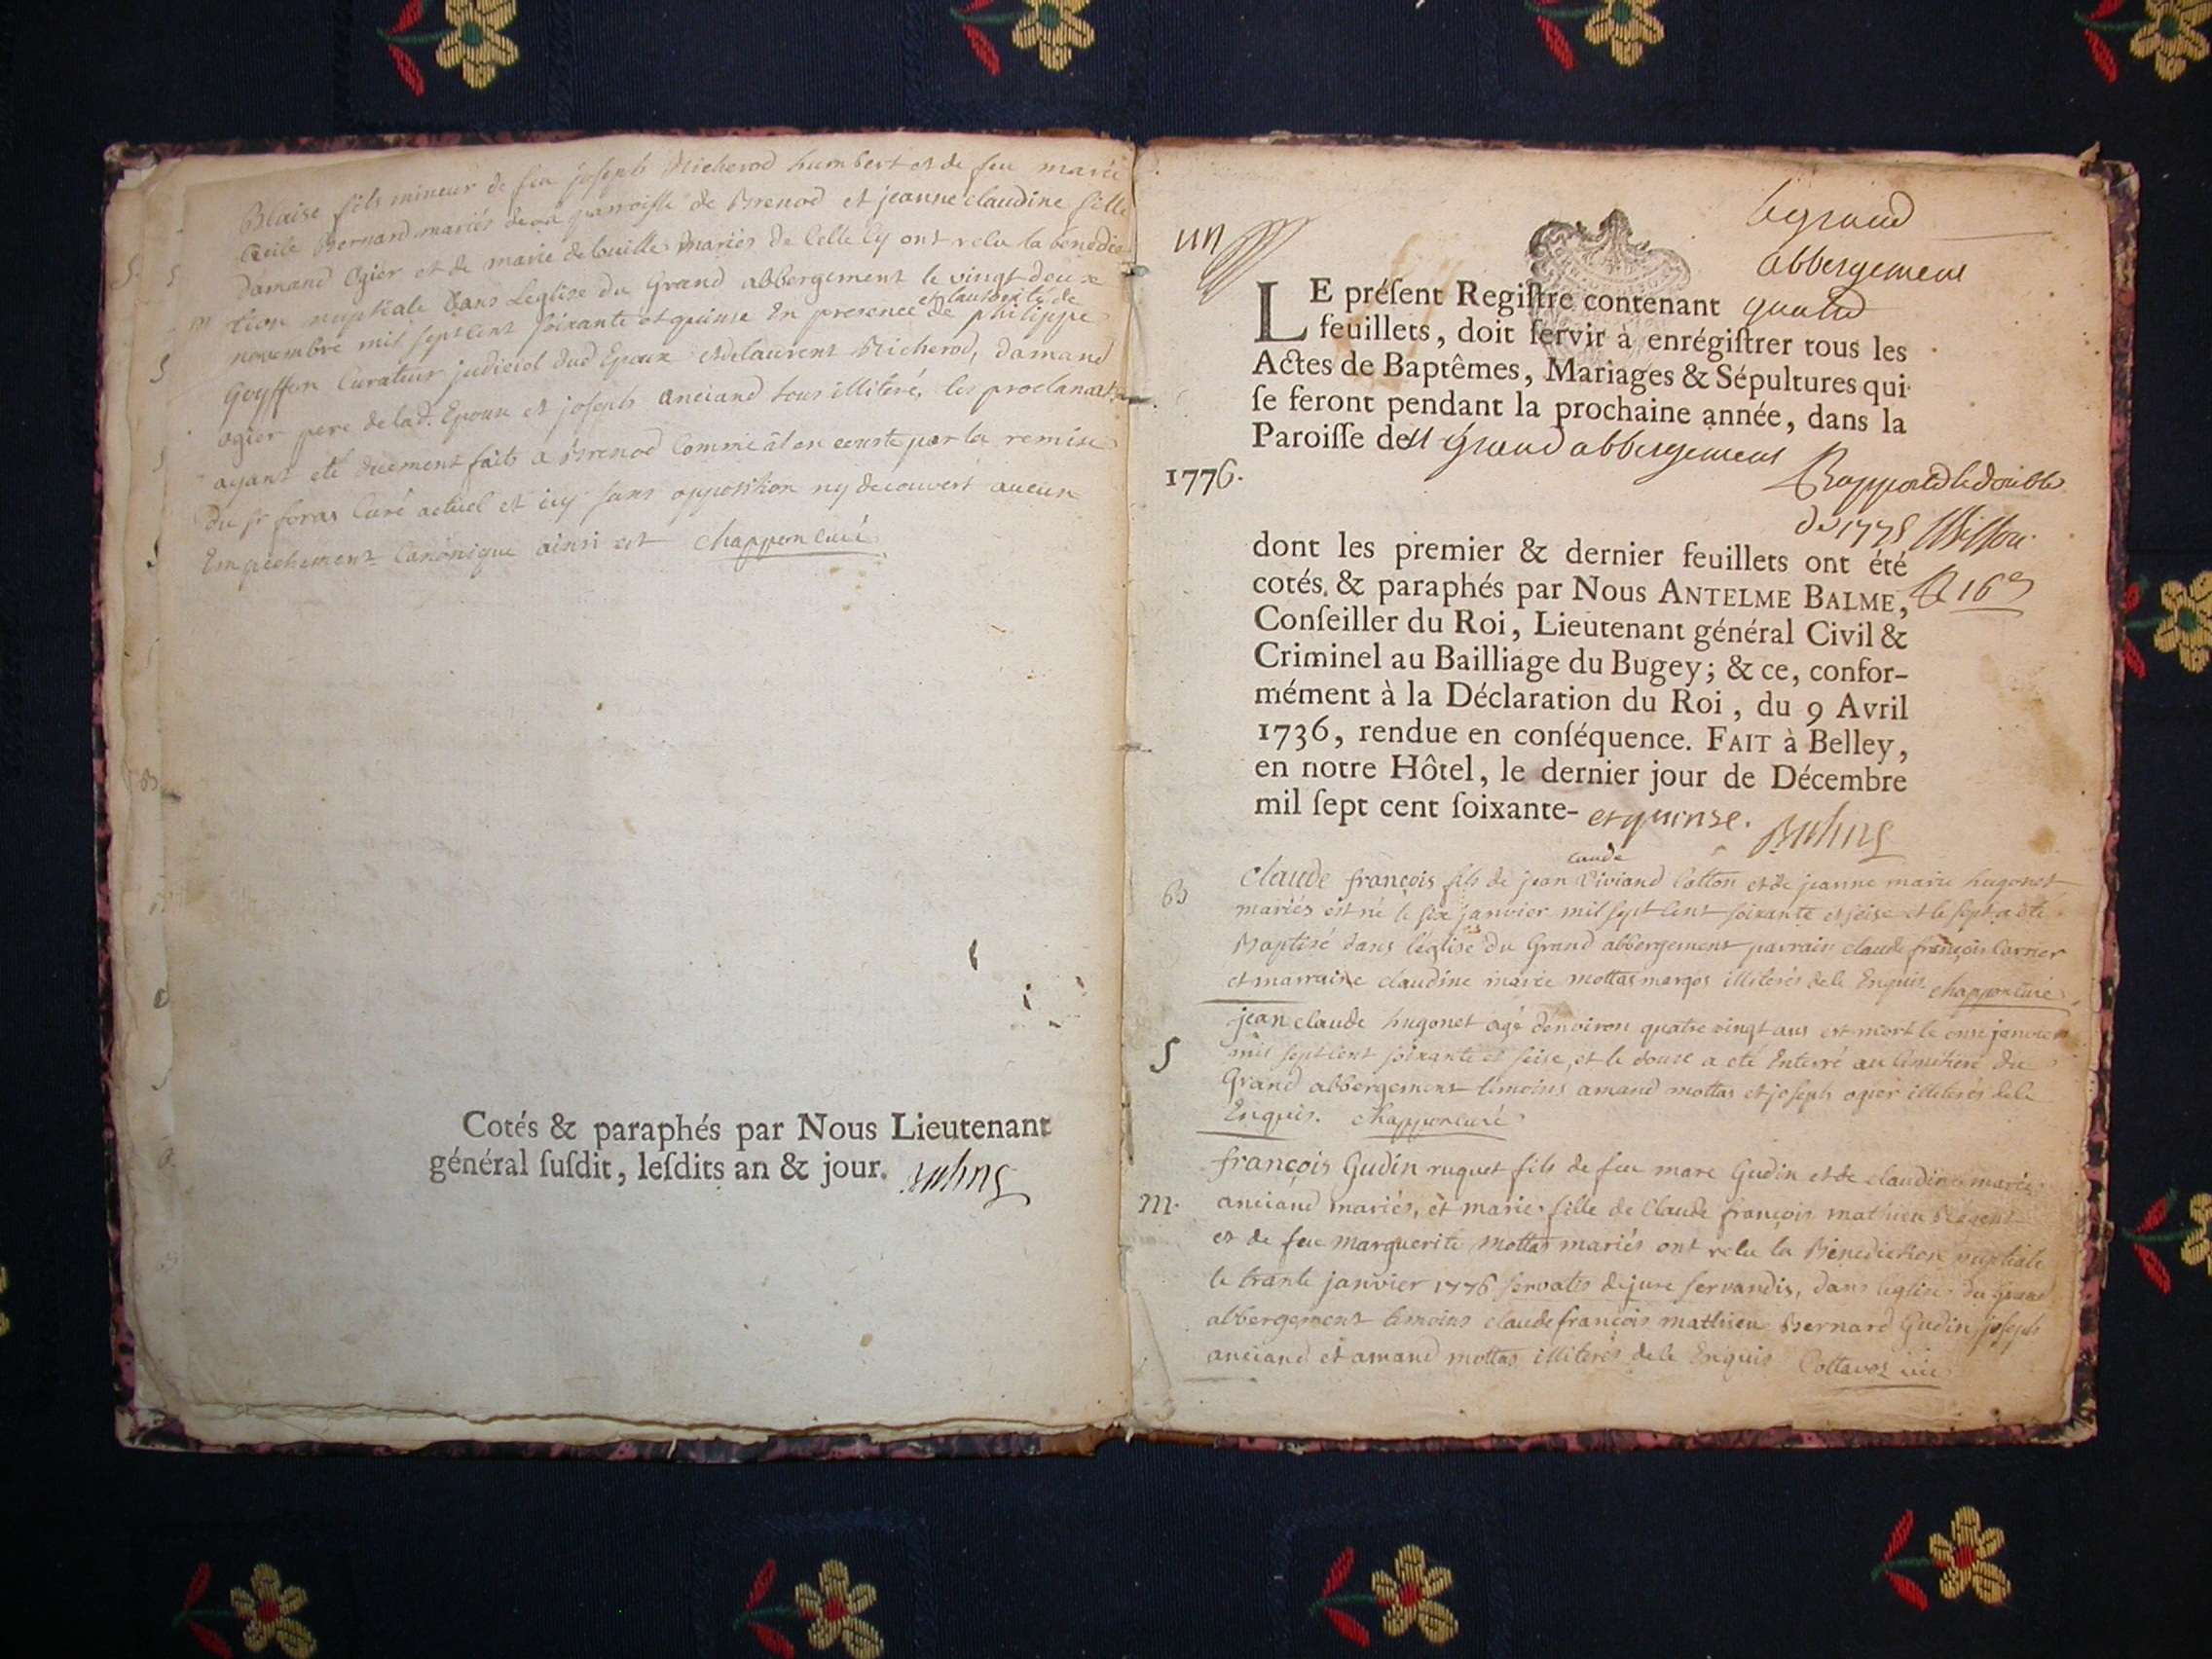 Blaise fils mineur de feu joseph Richerod humbert et de feu marie
Cecile Bernard mariés de la parroisse de Brenod et jeanne claudine fille
damand Ogier et de marie de louille mariés de Celle Cy ont relu la bénédic
m tion nuptiale dans Leglise du Grand abbergement le vingt deux
novembre mil sept cent soixante et quinse En presence de philippe
et lautorité de
Goyffon Curateur judiciel dud Epoux et de laurent Richerod, damand
ogier pere de lad. Epouse et joseph anciand tous illiteré, les proclamat.
ayant eté duement faits a Brenod Comme il en conste par la remise
du sr foras Curé actuel et icy sans opposition ny decouvert aucun
Empechement Canonique ainsi est chappon curé
Cotés & paraphés par Nous Lieutenant
général ſuſdit, leſdits an & jour. Balme
un
le grand
abbergement
LE préſent Regiſtre contenant quatre
feuillets, doit ſervir à enrégiſtrer tous les
Actes de Baptêmes, Mariages & Sépultures qui
ſe feront pendant la prochaine année, dans la
Paroiſſe de grand abbergement
1776.
Rapporté le double
de 1775
dont les premier & dernier feuillets ont été
cotés & paraphés par Nous ANTELME BALME,
Conſeiller du Roi, Lieutenant général Civil &
Criminel au Bailliage du Bugey; & ce, confor-
mément à la Déclaration du Roi, du 9 Avril
1736, rendue en conſéquence. FAIT à Belley,
en notre Hôtel, le dernier jour de Décembre
mil ſept cent ſoixante- et quinse. Balme
claude
B claude françois fils de jean Viviand Cotton et de jeanne marie hugonet
mariés est né le six janvier mil sept cent soixante et seise et le sept a été
Baptisé dans l'église du Grand abbergement parrain claude françois Carrier
et marraine claudine marie mottas margos illiterés de ce Enquis. chappon curé
jean claude hugonet agé d'environ quatre vingt ans est mort le onse janvier
S mil sept cent soixante et seise, et le douse a eté Enterré au Cimetiere du
Grand abbergement temoins amand mottas et joseph ogier illiterés de ce
Enquis. chappon curé
françois Gudin ruquet fils de feu marc Gudin et de claudine marie
m. anciand mariés, et marie fille de Claude françois mathieu
et de feu marguerite mottas mariés ont relu la Bénédiction nuptiale
le trante janvier 1776 servatis de jure servandis, dans leglise du grand
abbergement temoins claude françois mathieu Bernard Gudin joseph
anciand et amand mottas illiterés de ce Enquis Cottavoz vic